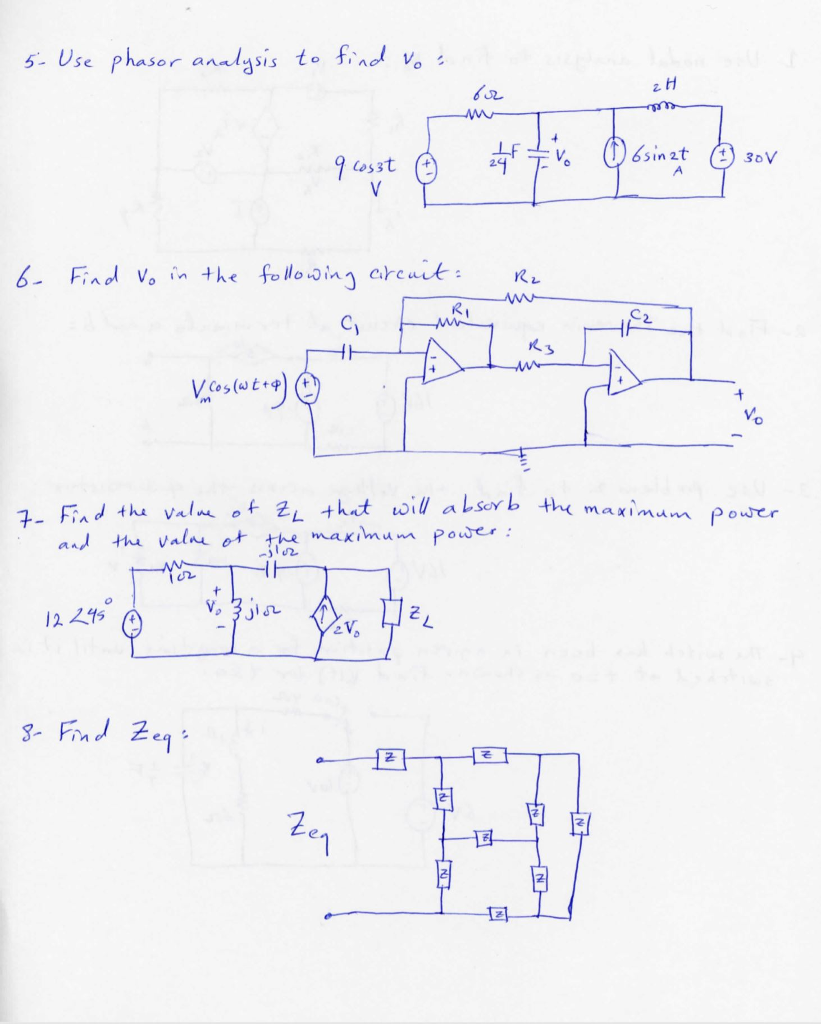 5- Use phasor analysis to find Vo :
6Ω
2H
9 cos3t
V
+
-
1/24 F
+
Vo
-
6sin2t
A
+
-
30V
6- Find Vo in the following circuit :
R2
R1
C1
C2
R3
Vm cos(ωt+φ)
+
-
-
+
-
+
+
Vo
-
7- Find the value of ZL that will absorb the maximum power
and the value of the maximum power :
-j1Ω
1Ω
12∠45°
+
-
+
Vo
-
j1Ω
2Vo
ZL
8- Find Zeq :
Z
Z
Z
Z
Z
Zeq
Z
Z
Z
Z